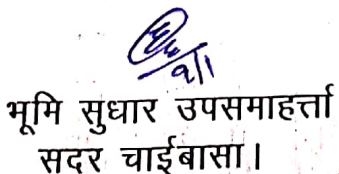 ९/१
भूमि सुधार उपसमाहर्त्ता
सदर चाईबासा।